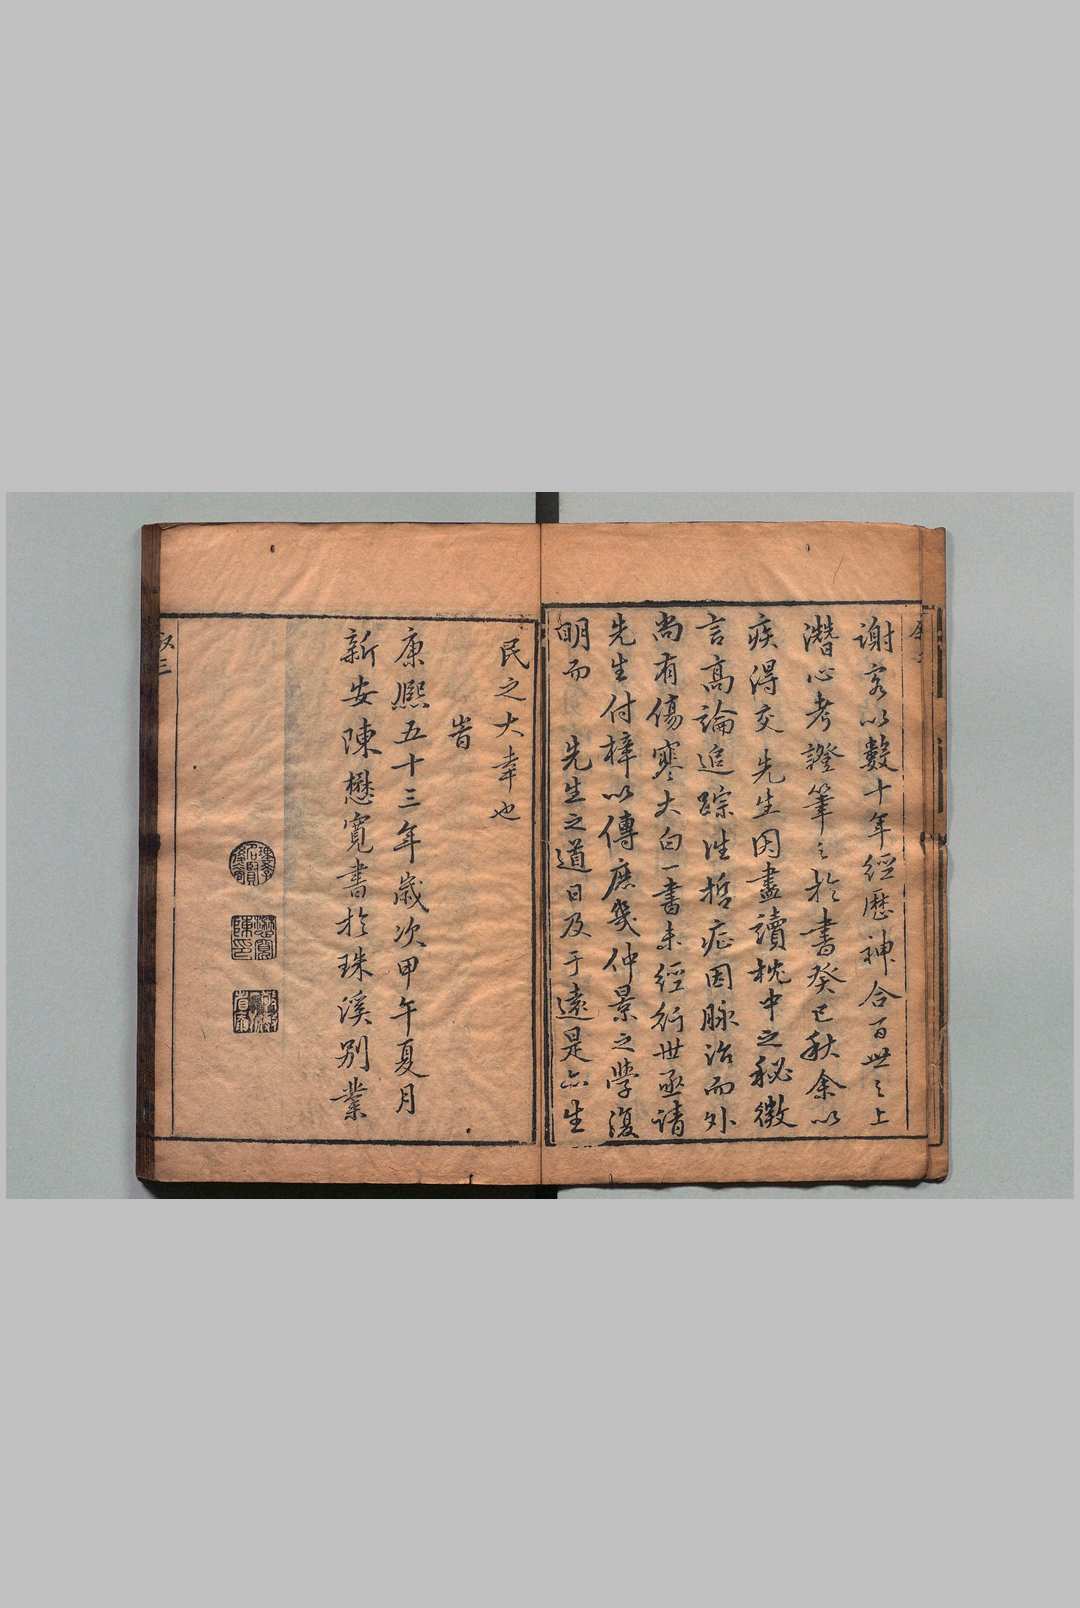 謝客以數十年經歷神合百世之上
潛心考證筆之於書癸巳秋余以
疾得交 先生因盡讀枕中之秘微
言高論追踪往哲症因脉治而外
尚有傷寒大白一書未經行世亟請
先生付梓以傳庶幾仲景之學復
明而 先生之道日及于遠是亦生
民之大幸也
旹
康熙五十三年歲次甲午夏月
新安陳懋寬書於珠溪別業
叙三